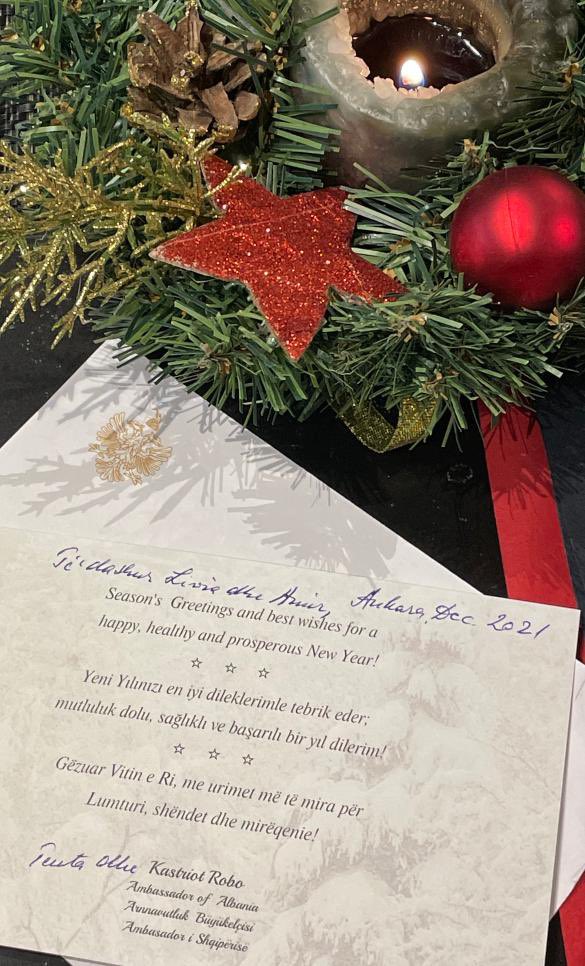 Të dashur Livia dhe Amir, Ankara, Dec. 2021
Season's Greetings and best wishes for a
happy, healthy and prosperous New Year!
Yeni Yılınızı en iyi dileklerimle tebrik eder;
mutluluk dolu, sağlıklı ve başarılı bir yıl dilerim!
Gëzuar Vitin e Ri, me urimet më të mira për
Lumturi, shëndet dhe mirëqenie!
dhe Kastriot Robo
Ambassador of Albania
Arnavutluk Büyükelçisi
Ambasador i Shqipërisë